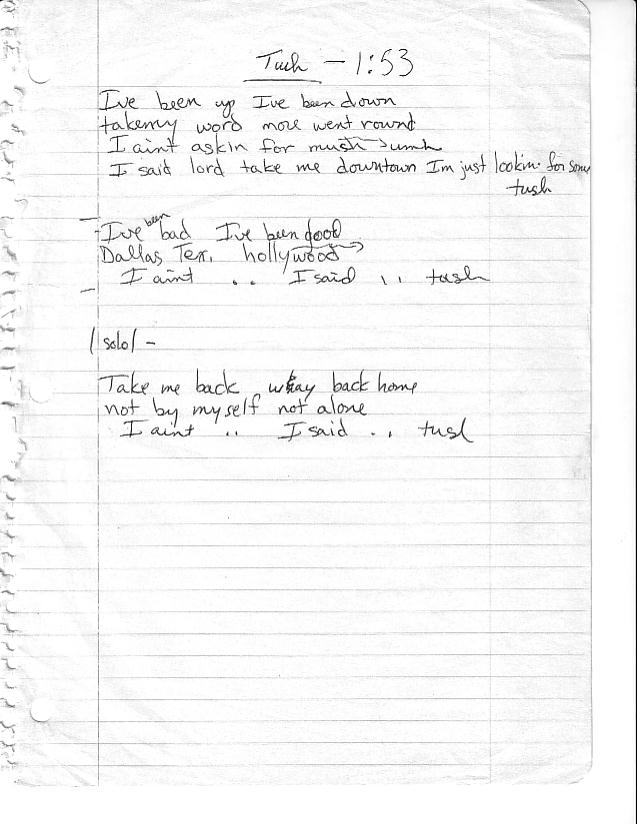 Tush - 1:53
I've been up I've been down
takemy word more went round
I aint askin for much umh
I said lord take me downtown Im just lookin for some
tush
I've been bad I've been good
Dallas Tex. hollywood
I aint .. I said .. tush
/solo/ -
Take me back way back home
not by myself not alone
I aint .. I said .. tush